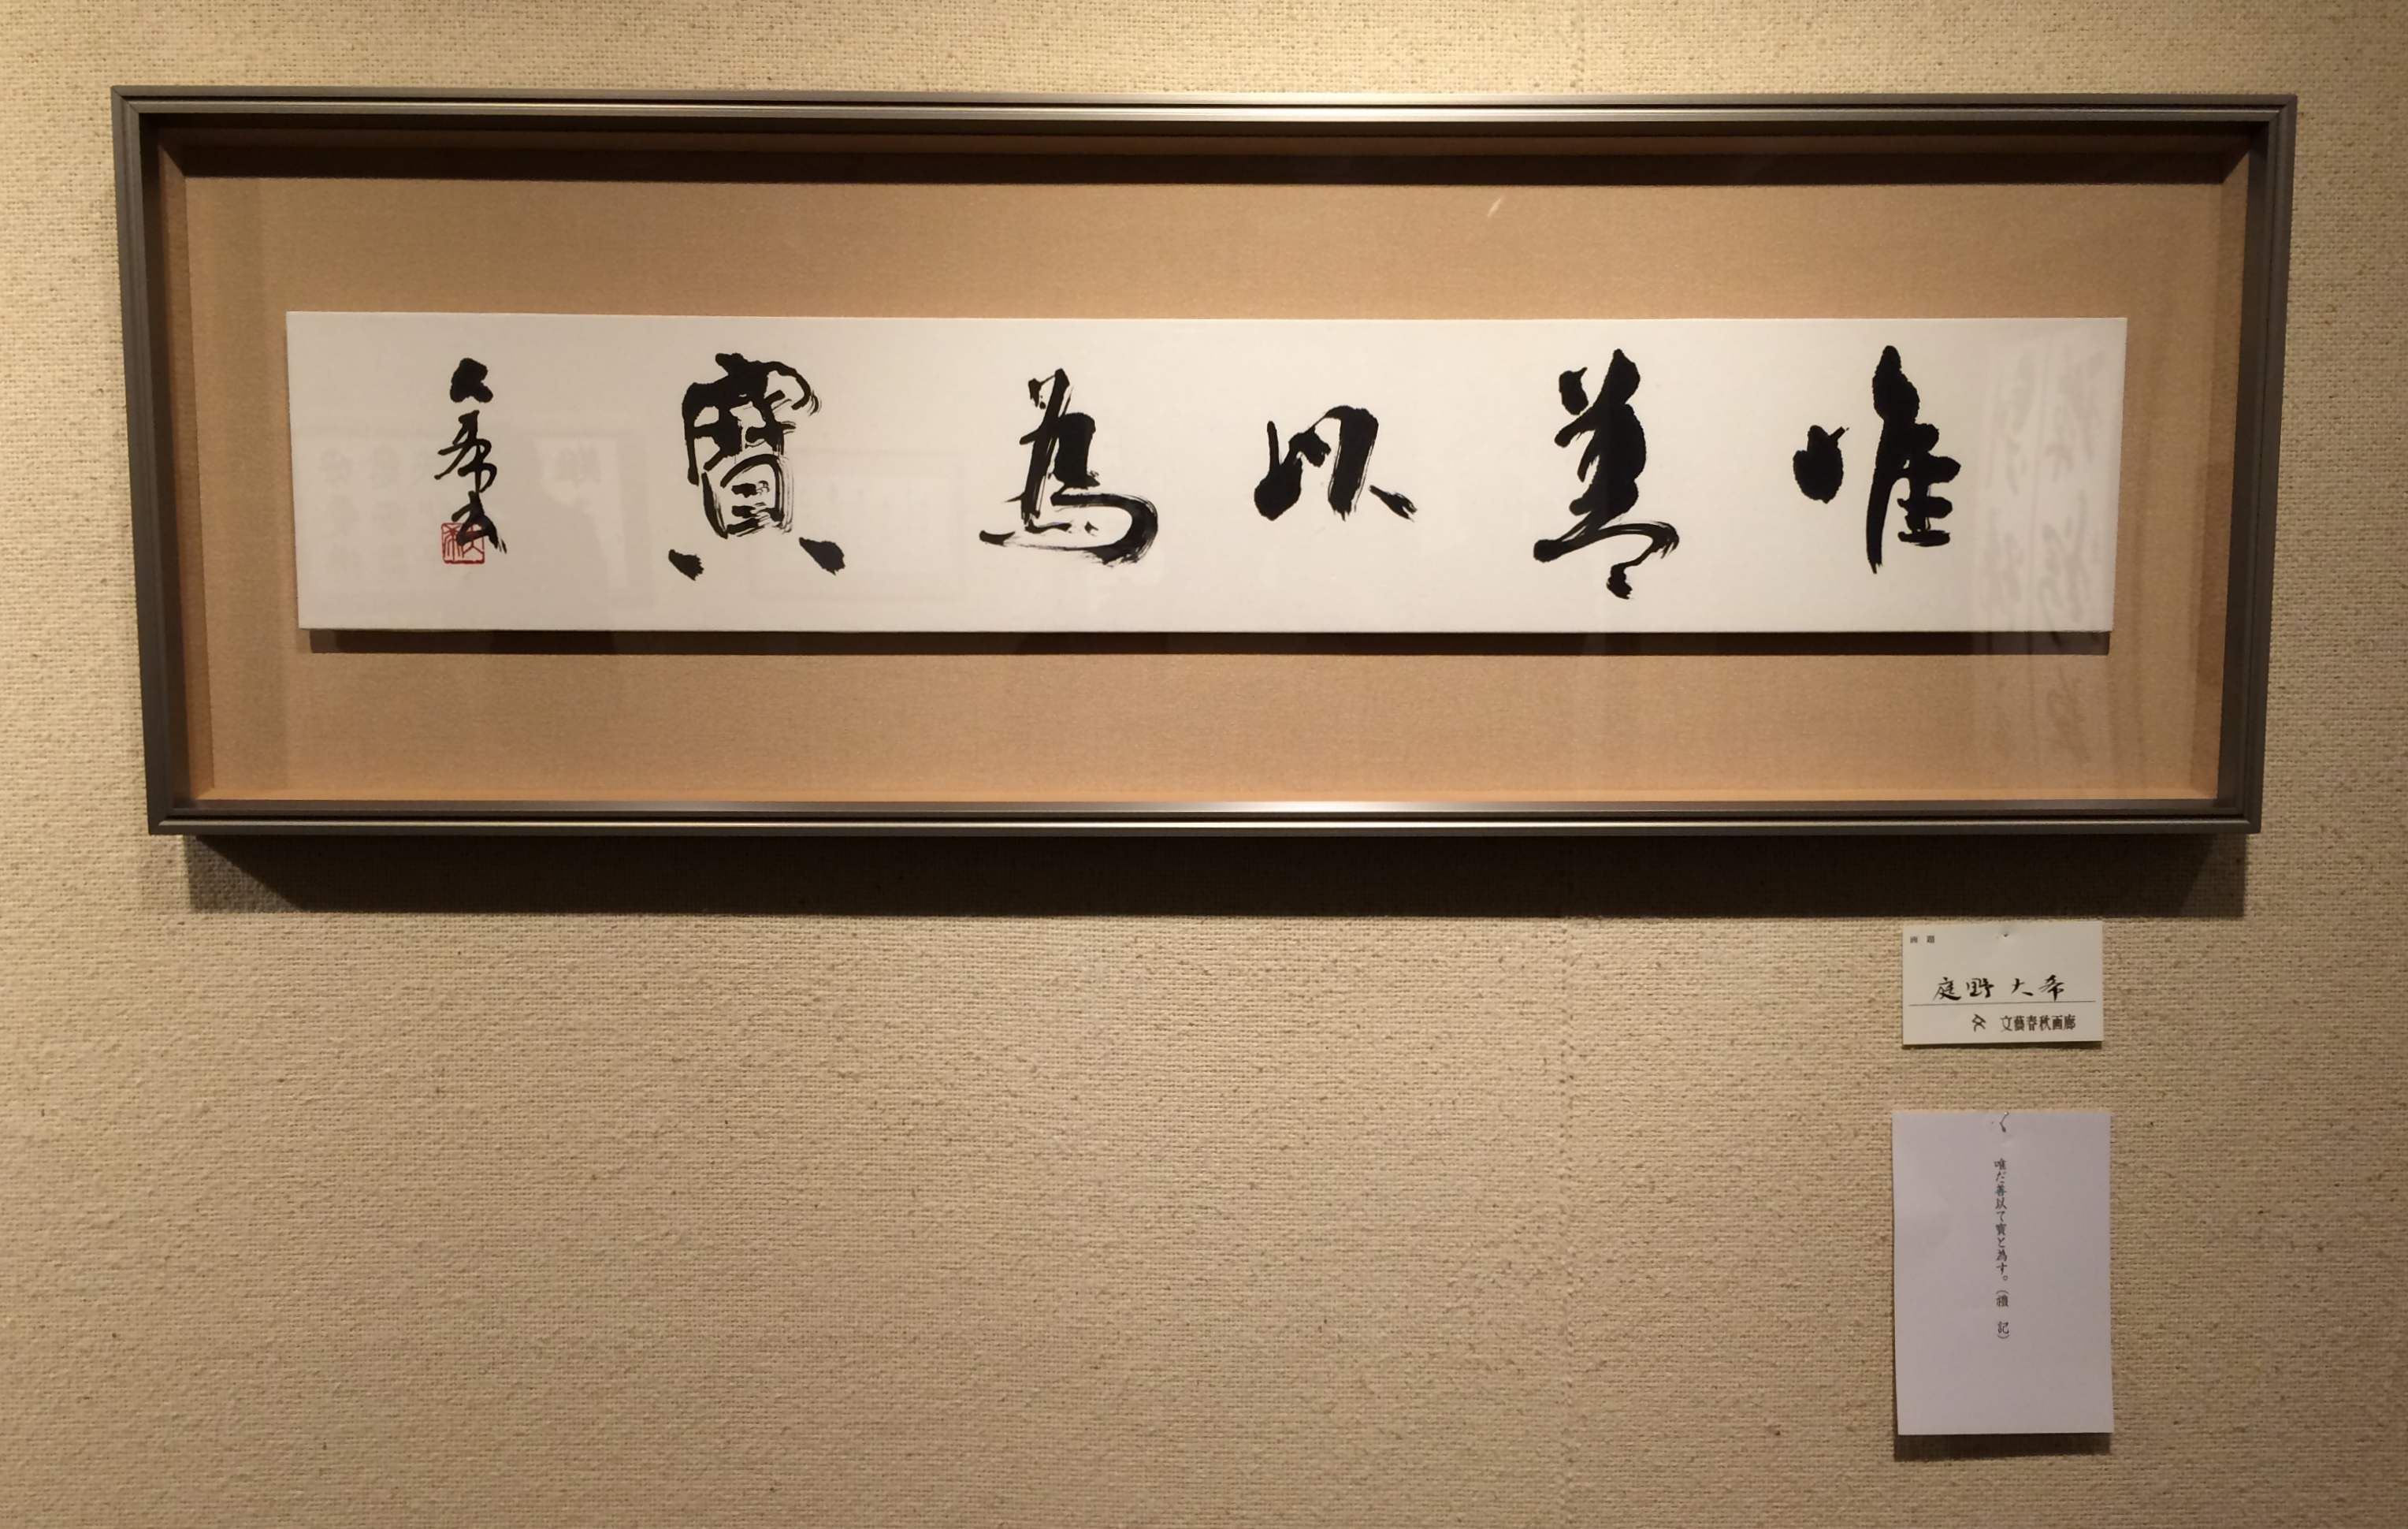 唯善以為寶
大希書
画題
庭野大希
文藝春秋画廊
唯だ善以て寶と為す。(禮 記)